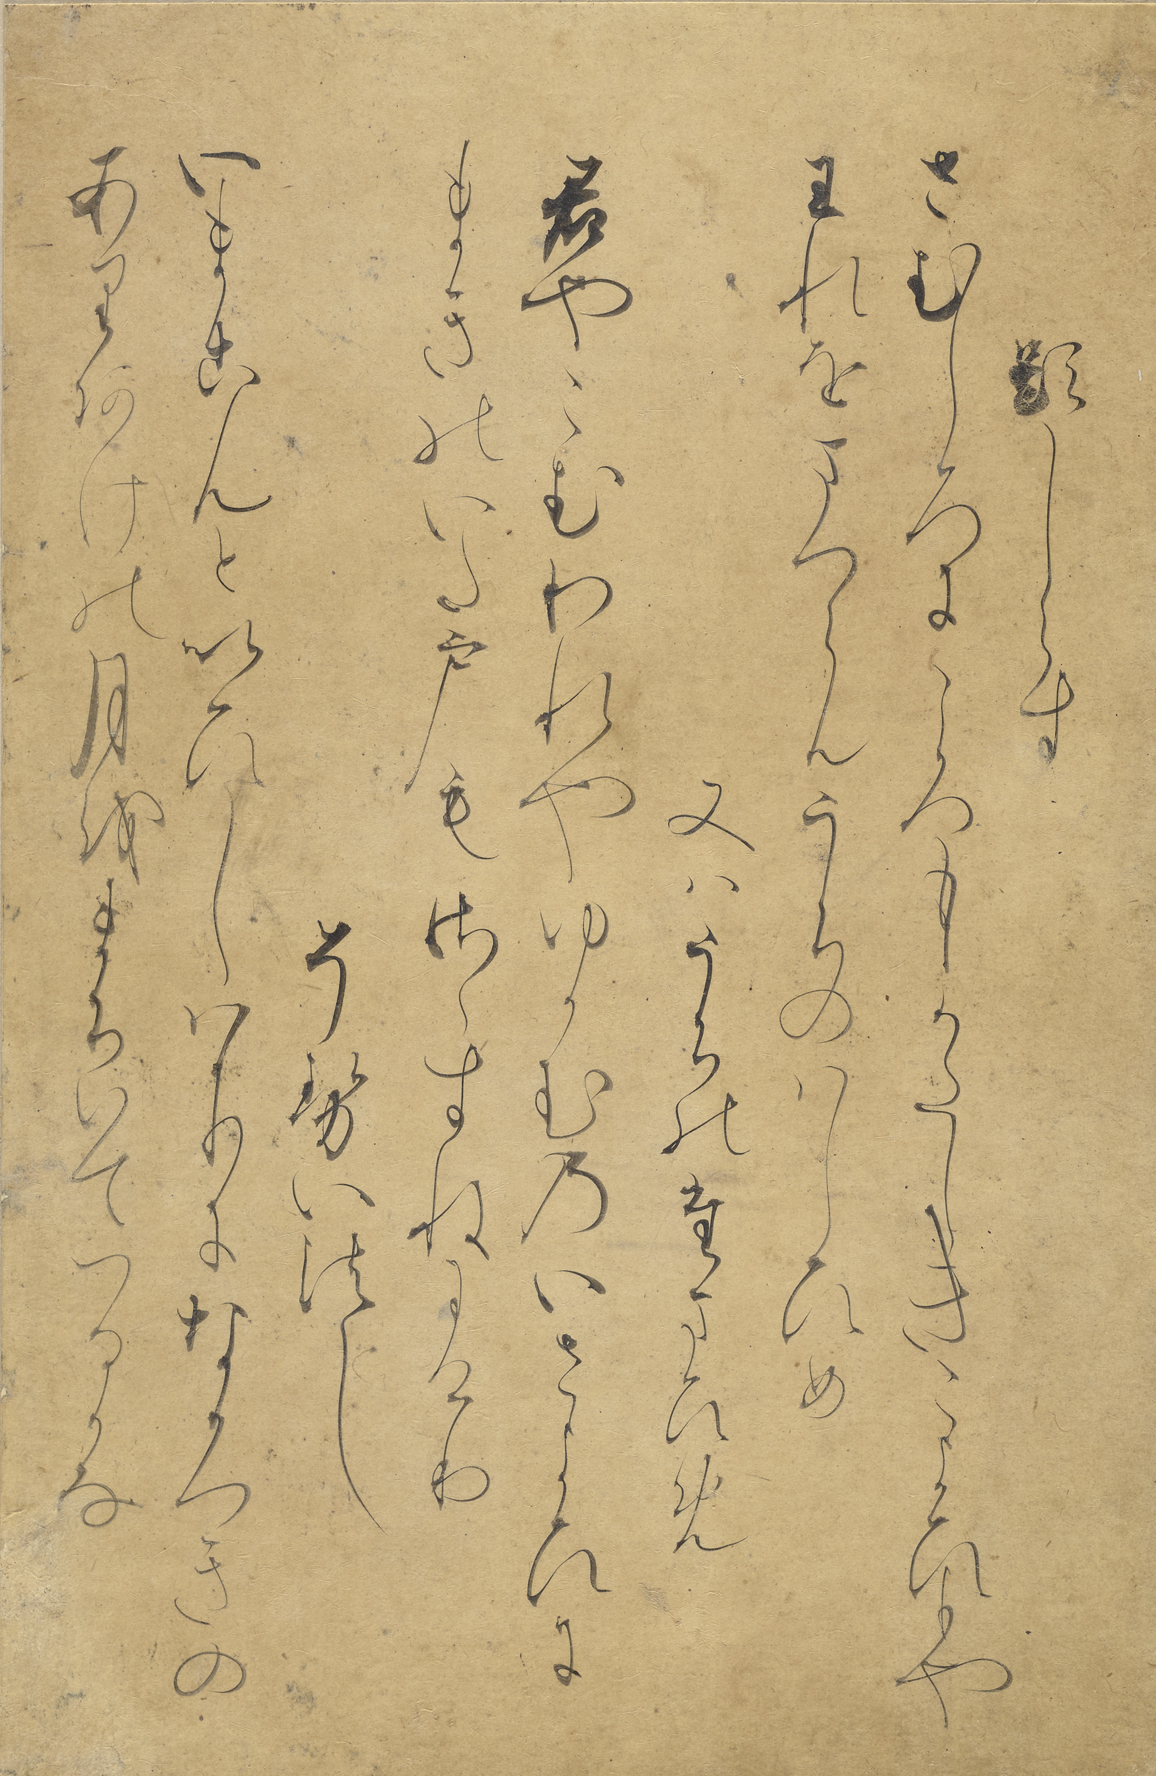 題しらす
さむしろにころもかたしきこよひもや
われをまつらんうちのはしひめ
又はうちのたまひめ
君やこむわれやゆかむのいさよひに
まきのいたともささすねにけり
そせいほうし
いまこんといひしはかりになかつきの
ありあけの月をまちいてつるかな